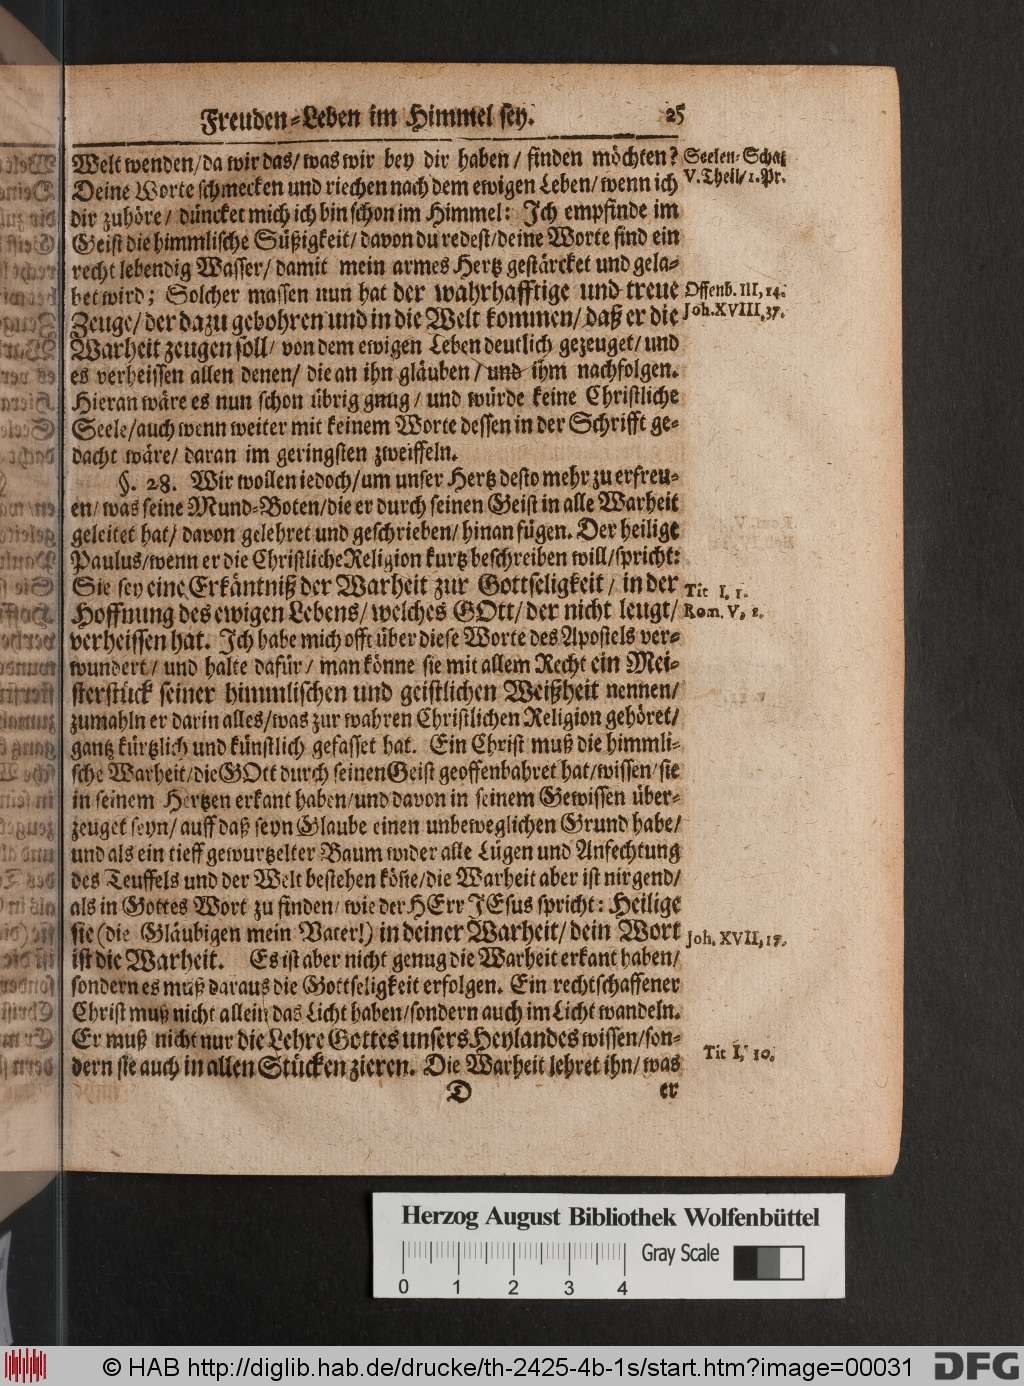 Freuden-Leben im Himmel sey. 25
Welt wenden/ da wir das/ was wir bey dir haben/ finden möchten?
Deine Worte schmecken und riechen nach dem ewigen Leben/ wenn ich
dir zuhöre/ düncket mich ich bin schon im Himmel: Ich empfinde im
Geist die himmlische Süßigkeit/ davon du redest/ deine Worte sind ein
recht lebendig Wasser/ damit mein armes Hertz gestärcket und gela-
bet wird; Solcher massen nun hat der wahrhafftige und treue
Zeuge/ der dazu gebohren und in die Welt kommen/ daß er die
Warheit zeugen soll/ von dem ewigen Leben deutlich gezeuget/ und
es verheissen allen denen/ die an ihn gläuben/ und ihm nachfolgen.
Hieran wäre es nun schon übrig gnug/ und würde keine Christliche
Seele/ auch wenn weiter mit keinem Worte dessen in der Schrifft ge-
dacht wäre/ daran im geringsten zweiffeln.
§. 28. Wir wollen iedoch/ um unser Hertz desto mehr zu erfreu-
en/ was seine Mund-Boten/ die er durch seinen Geist in alle Warheit
geleitet hat/ davon gelehret und geschrieben/ hinan fügen. Der heilige
Paulus/ wenn er die Christliche Religion kurtz beschreiben will/ spricht:
Sie sey eine Erkäntniß der Warheit zur Gottseligkeit/ in der
Hoffnung des ewigen Lebens/ welches GOtt/ der nicht leugt/
verheissen hat. Ich habe mich offt über diese Worte des Apostels ver-
wundert/ und halte dafür/ man könne sie mit allem Recht ein Mei-
sterstück seiner himmlischen und geistlichen Weißheit nennen/
zumahln er darin alles/ was zur wahren Christlichen Religion gehöret/
gantz kürtzlich und künstlich gefasset hat. Ein Christ muß die himmli-
sche Warheit/ die GOtt durch seinen Geist geoffenbahret hat/ wissen/ sie
in seinem Hertzen erkant haben/ und davon in seinem Gewissen über-
zeuget seyn/ auff daß seyn Glaube einen unbeweglichen Grund habe/
und als ein tieff gewurtzelter Baum wider alle Lügen und Anfechtung
des Teuffels und der Welt bestehen köñe/ die Warheit aber ist nirgend/
als in Gottes Wort zu finden/ wie der HErr JEsus spricht: Heilige
sie (die Gläubigen mein Vater!) in deiner Warheit/ dein Wort
ist die Warheit. Es ist aber nicht genug die Warheit erkant haben/
sondern es muß daraus die Gottseligkeit erfolgen. Ein rechtschaffener
Christ muß nicht allein das Licht haben/ sondern auch im Licht wandeln.
Er muß nicht nur die Lehre Gottes unsers Heylandes wissen/ son-
dern sie auch in allen Stücken zieren. Die Warheit lehret ihn/ was
D er
Seelen-Schatz
V. Theil/ 1. Pr.
Offenb. III, 14.
Joh. XVIII, 37.
Tit I, 1.
Rom. V, 2.
Joh. XVII, 17.
Tit I, 10.
Herzog August Bibliothek Wolfenbüttel
Gray Scale
0 1 2 3 4
© HAB http://diglib.hab.de/drucke/th-2425-4b-1s/start.htm?image=00031
DFG